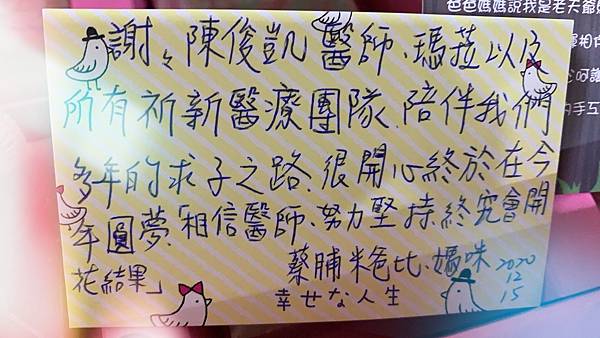 謝々陳俊凱醫師、瑪菈以及
所有祈新醫療團隊、陪伴我們
多年的求子之路、很開心終於在今
年圓夢、「相信醫師、努力堅持、終究會開
花結果」
蔡脯米爸比、媽咪
幸せな人生
2020
12
15
爸爸媽媽說我是老天爺